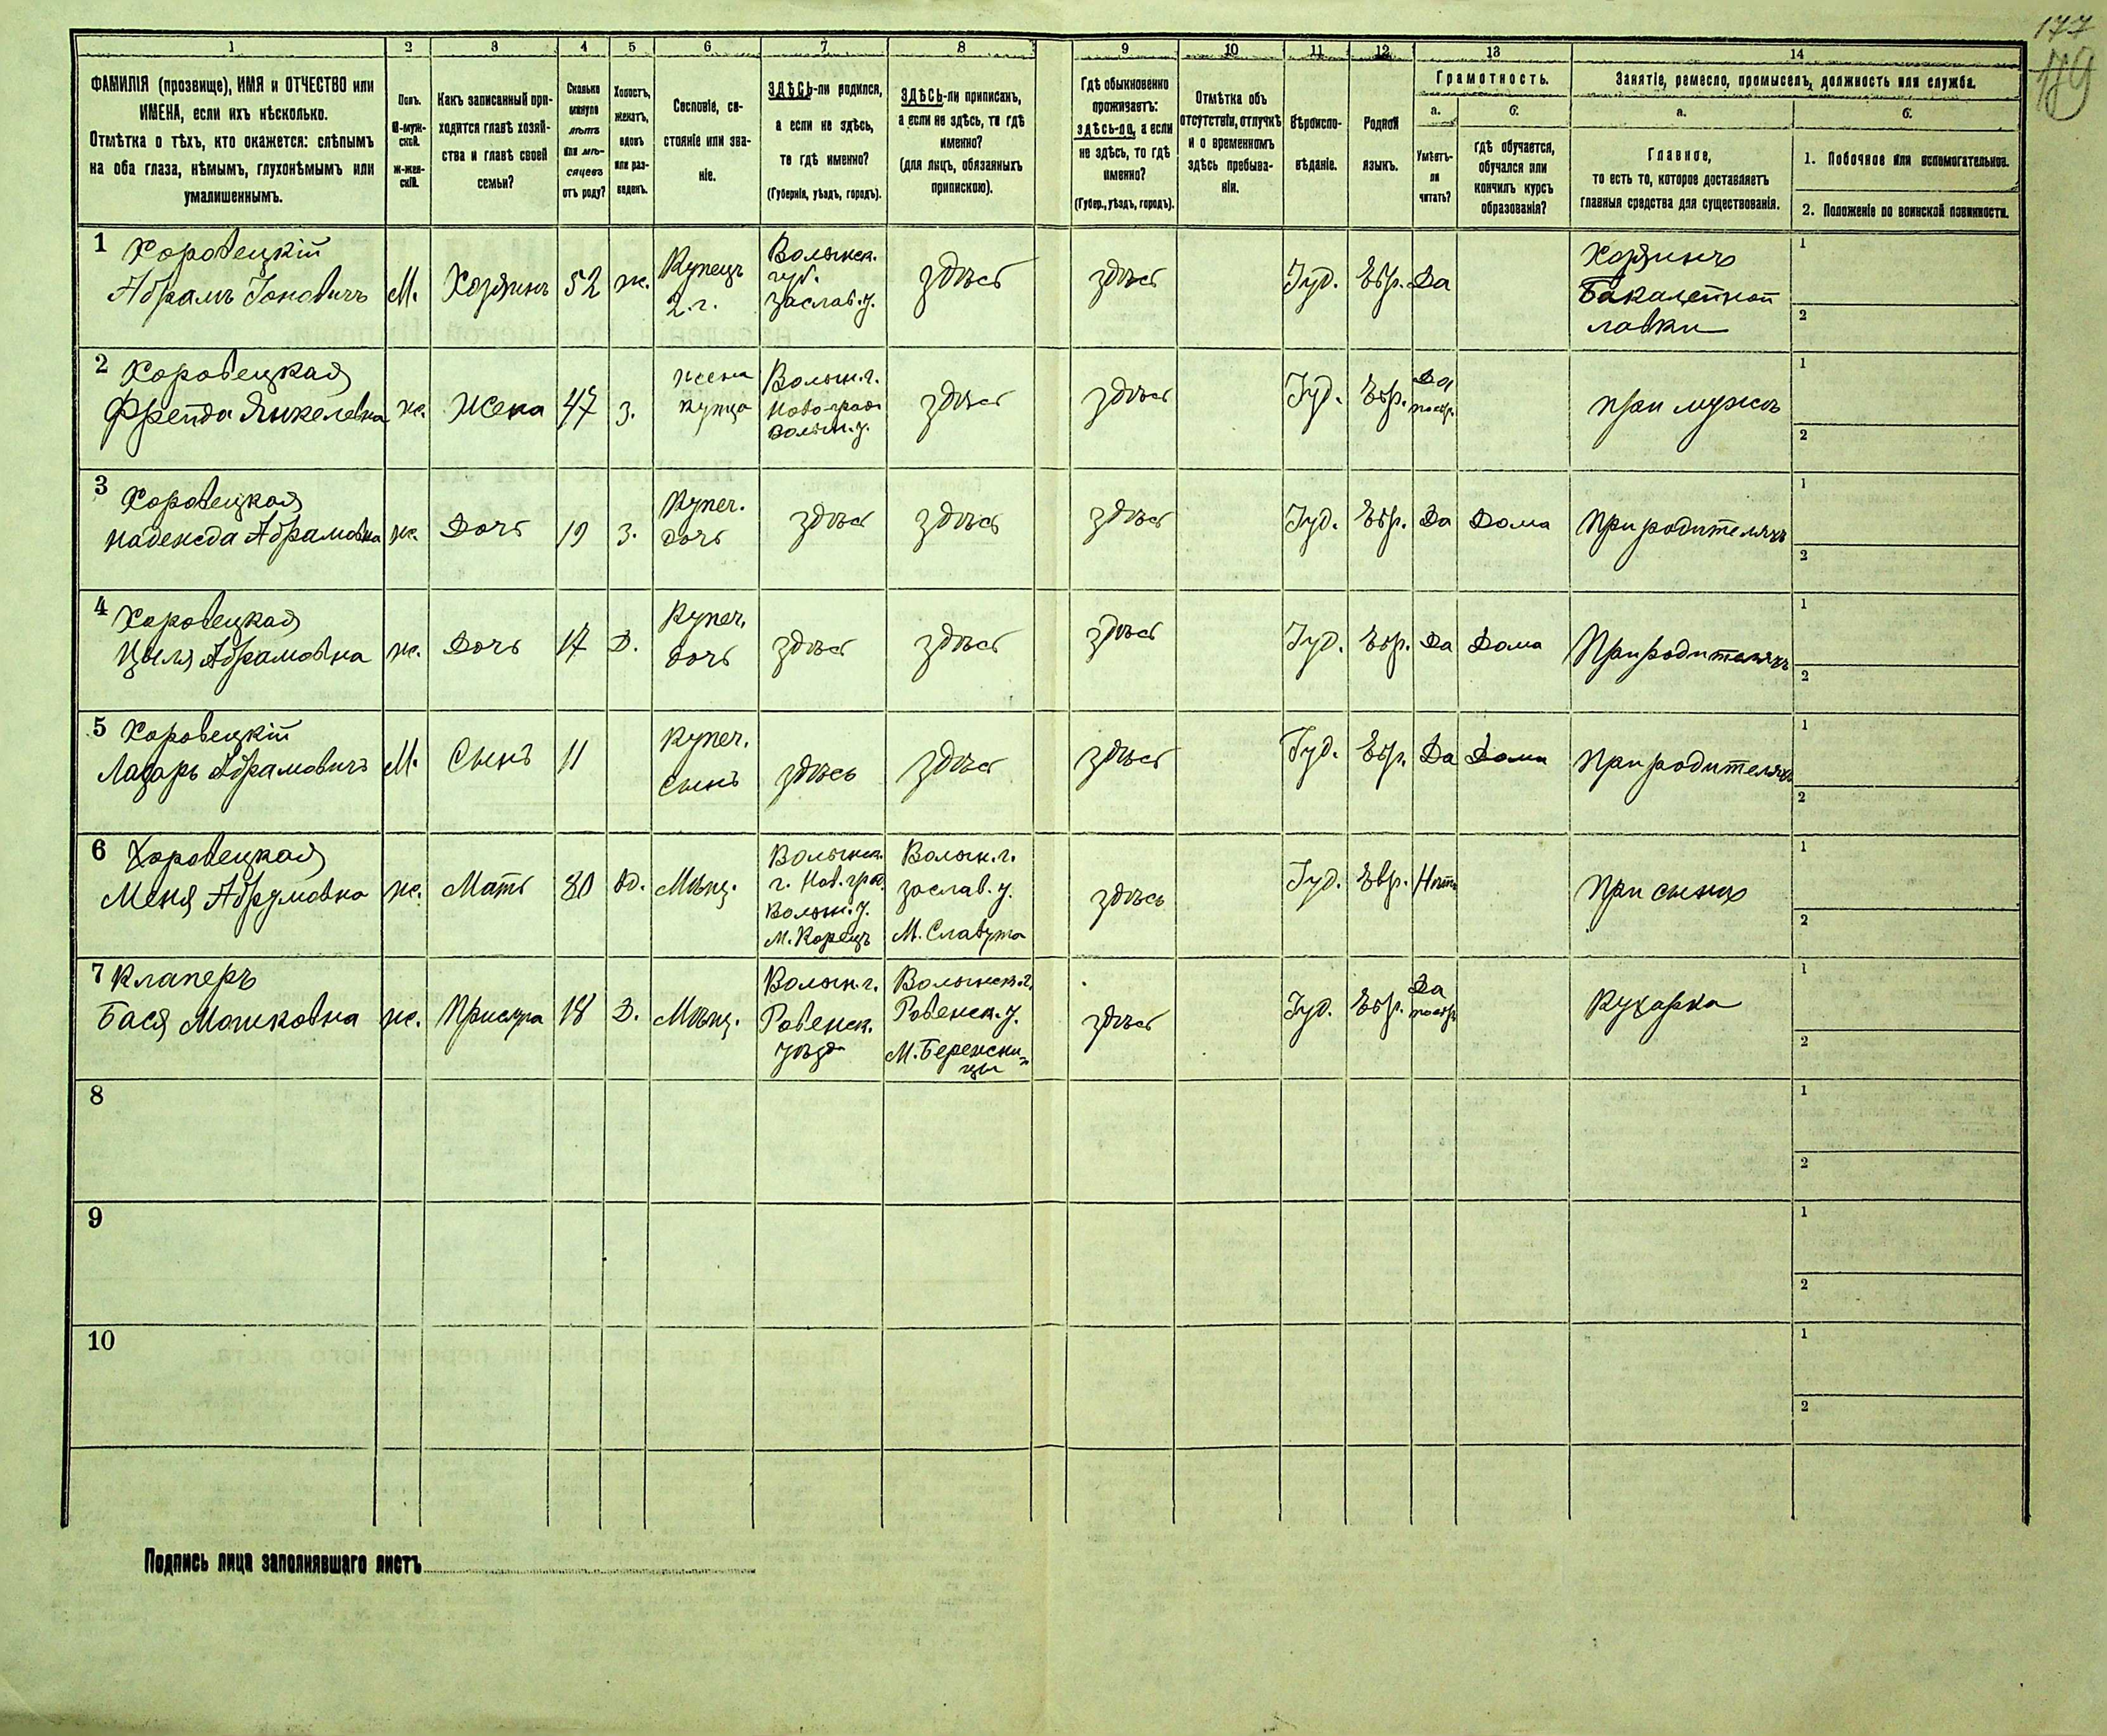 177
179
1 2 3 4 5 6 7 8 9 10 11 12 13 14
ФАМИЛІЯ (прозвище), ИМЯ и ОТЧЕСТВО или
ИМЕНА, если ихъ нѣсколько.
Отмѣтка о тѣхъ, кто окажется: слѣпымъ
на оба глаза, нѣмымъ, глухонѣмымъ или
умалишеннымъ.
Полъ.
М-муж-
ской.
Ж-жен-
скій.
Какъ записанный при-
ходится главѣ хозяй-
ства и главѣ своей
семьи?
Сколько
минуло
лѣтъ
или мѣ-
сяцевъ
отъ роду?
Холостъ,
женатъ,
вдовъ
или раз-
веденъ.
Сословіе, со-
стояніе или зва-
ніе.
ЗДѢСЬ-ли родился,
а если не здѣсь,
то гдѣ именно?
(Губернія, уѣздъ, городъ).
ЗДѢСЬ-ли приписанъ,
а если не здѣсь, то гдѣ
именно?
(для лицъ, обязанныхъ
припискою).
Гдѣ обыкновенно
проживаетъ:
здѣсь-ли, а если
не здѣсь, то гдѣ
именно?
(Губер., уѣздъ, городъ).
Отмѣтка объ
отсутствіи, отлучкѣ
и о временномъ
здѣсь пребыва-
ніи.
Вѣроиспо-
вѣданіе.
Родной
языкъ.
Грамотность.
а.
Умѣетъ-
ли
читать?
б.
гдѣ обучается,
обучался или
кончилъ курсъ
образованія?
Занятіе, ремесло, промыселъ, должность или служба.
а.
Главное,
то есть то, которое доставляетъ
главныя средства для существованія.
б.
1. Побочное или вспомогательное.
2. Положеніе по воинской повинности.
1 Коровецкій
Абрамъ Іоновичъ
М.
Хозяинъ
52
ж.
Купецъ
2.г.
Волынск.
губ.
Заслав.у.
здѣсь
здѣсь
Іуд.
Евр.
Да
Хозяинъ
Бакалейной
лавки
1
2
2 Коровецкая
Фрейда Янкелевна
ж.
Жена
47
З.
жена
купца
Волын.г.
Ново-град
Волын.у.
здѣсь
здѣсь
Іуд.
Евр.
Да
при мужѣ
1
2
3 Коровецкая
Надежда Абрамовна
ж.
Дочь
19
З.
Купеч.
дочь
здѣсь
здѣсь
здѣсь
Іуд.
Евр.
Да
Дома
При родителяхъ
1
2
4 Коровецкая
Цыля Абрамовна
ж.
Дочь
17
Д.
Купеч.
дочь
здѣсь
здѣсь
здѣсь
Іуд.
Евр.
Да
Дома
При родителяхъ
1
2
5 Коровецкій
Лазарь Абрамовичъ
М.
Сынъ
11
Купеч.
сынъ
здѣсь
здѣсь
здѣсь
Іуд.
Евр.
Да
Дома
При родителяхъ
1
2
6 Коровецкая
Меня Абрумовна
ж.
Мать
80
вд.
Мѣщ.
Волынск.
г. Нов.град.
Волын.у.
М.Корецъ
Волын.г.
заслав.у.
М.Славута
здѣсь
Іуд.
Евр.
Нѣтъ
При сынѣ
1
2
7 Клаперъ
Бася Мошковна
ж.
Прислуга
18
Д.
Мѣщ.
Волын.г.
Ровенск.
уѣзда
Волынск.г.
Ровенск.у.
М.Бережни-
цы
здѣсь
Іуд.
Евр.
Да
Кухарка
1
2
8
1
2
9
1
2
10
1
2
Подпись лица заполнявшаго листъ